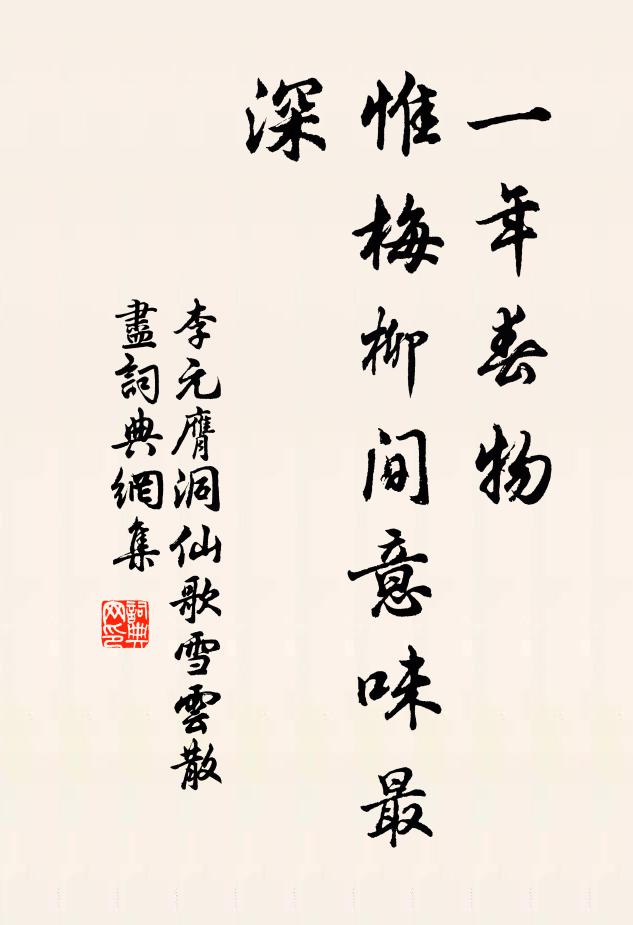 一年春物
惟梅柳間意味最
深
李元膺洞仙歌雪雲散
盡詞典網集
詞典
网印